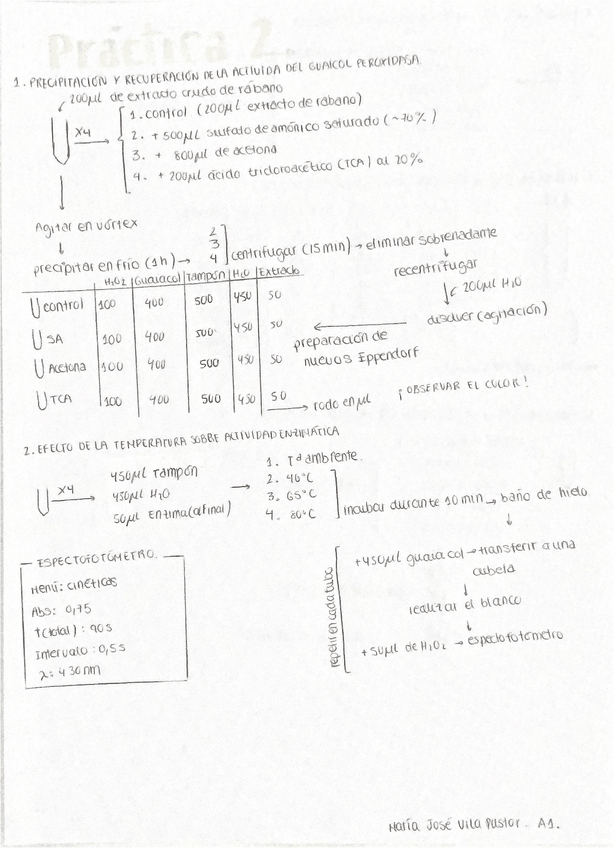 Práctica 2
1. PRECIPITACIÓN Y RECUPERACIÓN DE LA ACTIVIDA DEL GUAICOL PEROXIDASA.
200µl de extracto crudo de rábano
x4
1. control (200µl extracto de rábano)
2. + 500µl sulfato de amónico saturado (~70%)
3. + 800µl de acetona
4. + 200µl ácido tricloroacético (TCA) al 20%
Agitar en vórtex
precipitar en frío (1h) → 2 3 4 centrifugar (15min) → eliminar sobrenadante
recentrifugar
200µl H2O
disolver (agitación)
preparación de nuevos Eppendorf
H2O2 Guaiacol Tampón H2O Extracto
control 100 400 500 450 50
SA 100 400 500 450 50
Acetona 100 400 500 450 50
TCA 100 400 500 450 50 → todo en µl
¡OBSERVAR EL COLOR!
2. EFECTO DE LA TEMPERATURA SOBRE ACTIVIDAD ENZIMÁTICA
x4
450µl Tampón
450µl H2O
50µl Enzima (al final)
1. Tª ambiente.
2. 40°C
3. 65°C
4. 80°C
incubar durante 10 min → baño de hielo
repetir en cada tubo
+450µl guaiacol → transferir a una cubeta
realizar el blanco
+50µl de H2O2 → espectofotómetro
ESPECTOFOTÓMETRO.
Menú: cinéticas
Abs: 0,75
t(total): 90s
Intervalo: 0,5s
λ: 430nm
María José Vila Pastor. A1.